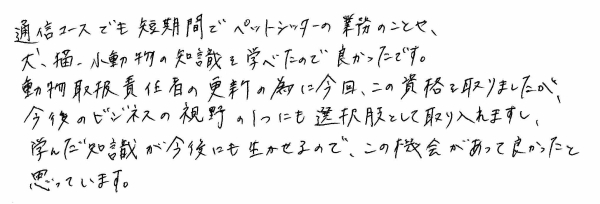 通信コースでも短期間でペットシッターの業務のことや、
犬、猫、小動物の知識を学べたので良かったです。
動物取扱責任者の更新の為に今回、この資格を取りましたが、
今後のビジネスの視野の1つにも選択肢として取り入れますし、
学んだ知識が今後にも生かせるので、この機会があって良かったと
思っています。